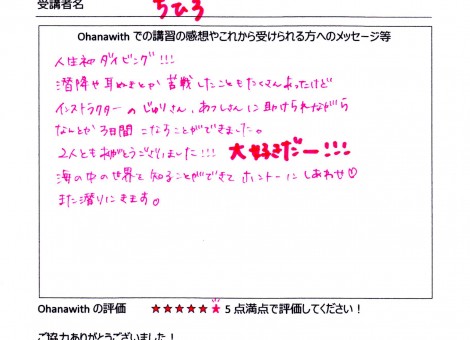 受講者名 ちひろ
Ohanawith での講習の感想やこれから受けられる方へのメッセージ等
人生初ダイビング!!!
潜降や耳ぬきとか苦戦したこともたくさんあったけど
インストラクターのじゅりさん、あつしさんに助けられながら
なんとか3日間こなすことができました。
2人ともありがとうございました!!! 大好きだー!!!
海の中の世界を知ることができてホントーにしあわせ♡
また潜りにきます。
Ohanawith の評価 ★★★★★★ 5 点満点で評価してください!
ご協力ありがとうございました!